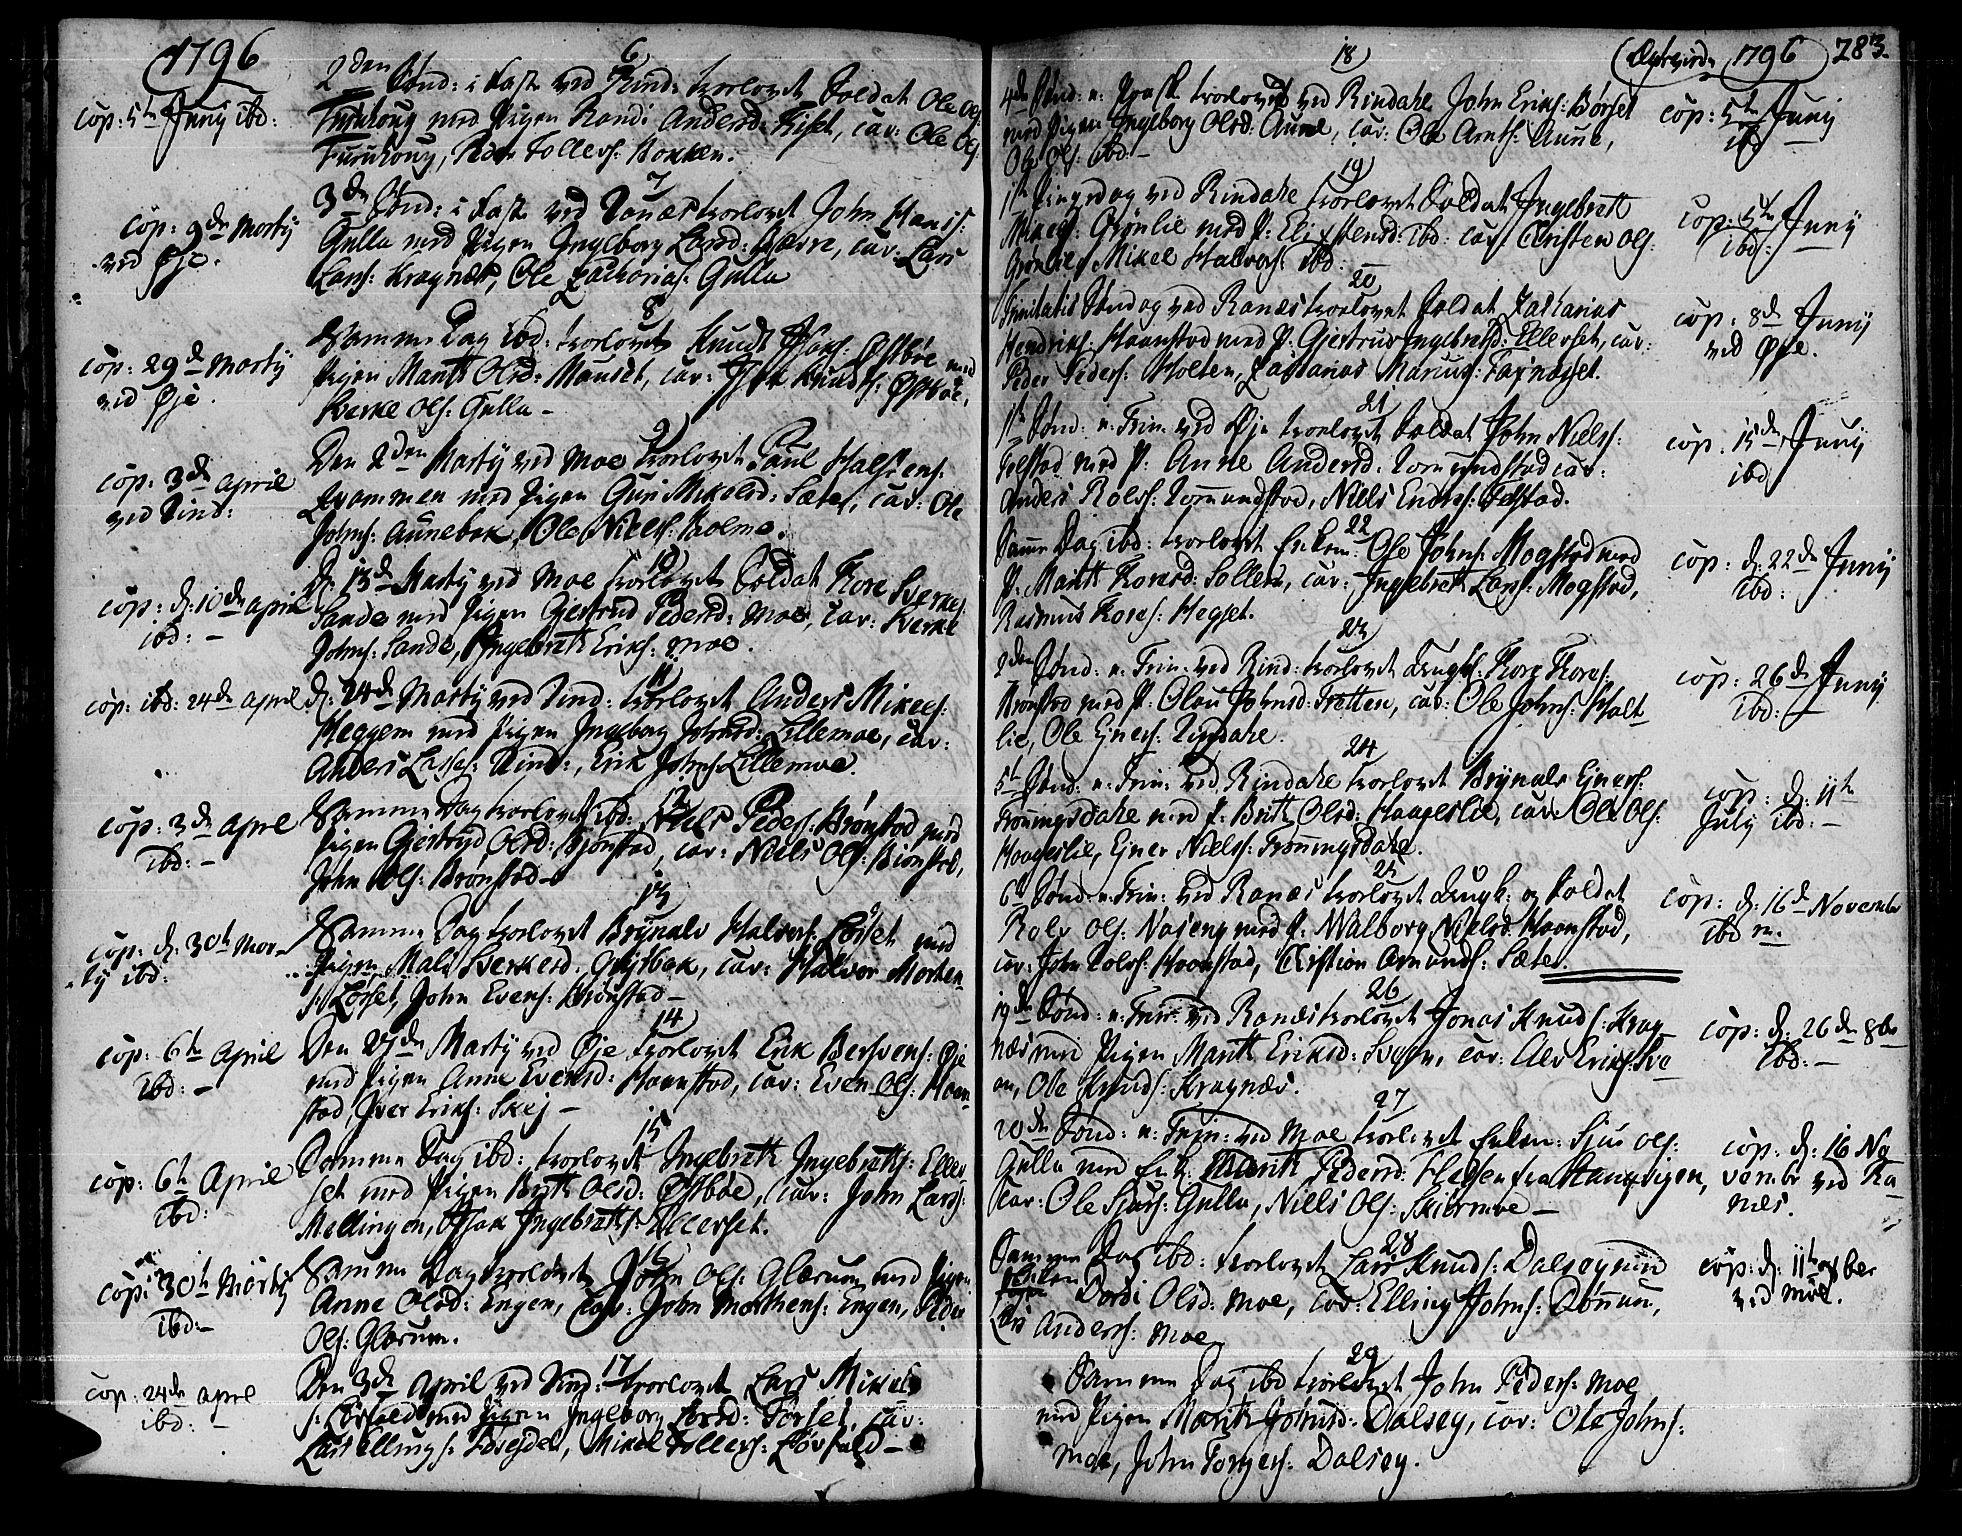 1796
6
2den Sønd: i Faste ved Rind: trolovet Soldat Ole Ols:
Furuhoug med Pigen Randi Andersd: Fiset, cav: Ole Ols:
Furuhoug, Peder Tollefs: Bokken.
cop: 5te Junij ibd:
7
3de Sønd: i Faste ved Ranes trolovet John Hans:
Gulla med Pigen Ingeborg Larsd: cav: Lars
Lars: Kragnæs, Ole Zacharias: Gulla
cop: 9de Martij
ved Øje.
8
Samme Dag ibd: trolovet Knud Østbøe med
Pigen Marit Olsd: Mauset, cav: Knuds: Østbøe,
Sverke Ols: Gulla –
cop: 29de Martij
ved Øje.
9
Den 2den Martij ved Moe trolovet Paul Halstens:
Qvammen med Pigen Guri Mikelsd: Sæter, cav: Ole
Johns: Aunebak, Ole Niels: Holme.
cop: 3de April
ved Rind:
10
D: 13de Martij ved Moe trolovet Soldat Tore Sverkes:
Sande med Pigen Gjertrud Pedersd: Moe, cav: Sverke
Johns: Sande, Ingebrit Eriks: Moe.
cop: d: 10de April
ibd: –
11
d: 24de Martij ved Rind: trolovet Anders Mikels:
Heggem med Pigen Ingeborg Johnsd: Lillemoe, cav:
Anders Lasses: Rind:, Erik Johns: Lillemoe.
cop: ibd: 24de April
12
Samme Dag trolovet ibd: Niels Peders: Brønstad med
Pigen Gjertrud Olsd: Bjønstad, cav: Niels Ols: Bjønstad,
John Ols: Brønstad –
cop: 3de April
ibd: –
13
Samme Dag trolovet Brynald Halvors: Løset med
Pigen Mali Sverkesd: Qvistbak, cav: Halvor Morten-
s: Løset, John Evens: Brønstad –
cop: d: 30te Mar-
tij ibd:
14
Den 27de Martij ved Øje trolovet Erik Bersvens: Øje
med Pigen Anne Evensd: Haanstad, cav: Even Ols: Haan-
stad, Iver Eriks: Skej –
cop: 6te April
ibd: –
15
Samme Dag ibd: trolovet Ingebrit Ingebrits: Eller-
set med Pigen Brit Olsd: Østbøe, cav: John Lars:
Mellingen, Isak Ingebrits: Ellerset.
cop: 6te April
ibd:
16
Samme Dag trolovet John Ols: Glærum med Pigen
Anne Olsd: Engen, cav: John Mathens: Engen, Peder
Ols: Glærum.
cop: 30te Martij
ibd: –
17
Den 3de April ved Rind: trolovet Lars Mikel-
s: Løvfald med Pigen Ingeborg Larsd: Børset, cav:
Lars Ellings: Mikel Tollefs: Løvfald –
cop: 24de April
ibd: –
1796
283.
18
4de Sønd: e: Paask: trolovet ved Rindahl John Eriks: Børset
med Pigen Ingeborg Olsd: Aune, cav: Ole Arnts: Aune,
Ole Ols: ibd: –
cop: 5te Junij
ibd –
19
1ste Pingsdag ved Rindahl trolovet Soldat Ingebrit
Grønlie med P: Eli Stensd: ibd: cav: Christen Ols:
Grønlie, Mikel Halvors: ibd: –
cop: 5te Junij
ibd:
20
Trinitatis Søndag ved Ranes trolovet Soldat Zacharias
Hendriks: Haanstad med P: Gjertrud Ingebritsd: Ellevset, cav:
Peder Peders: Holten, Zacharias
cop: 8de Junij
ved Øje.
21
1ste Sønd: e: Trin: ved Øje trolovet Soldat John Niels:
Telstad med P: Anne Andersd: Romundstad cav:
Anders Rolvs: Romundstad, Niels Endres: Telstad.
cop: 15de Junij
ibd
22
Samme Dag ibd: trolovet Enkem: Ole Johns: Mogstad med
P: Marit Toresd: Sollem, cav: Ingebrit Lars: Mogstad,
Rasmus Tores: Hegset.
cop: d: 22de Junij
ibd:
23
2den Sønd: e: Trin: ved Rind: trolovet Tore Tores:
Brønstad med P: Olou Johnsd: Tretten, cav: Ole Johns: Halt-
lie, Ole Ejners: Rindahl.
cop: 26de Junij
ibd: –
24
5te Sønd: e: Trin: ved Rindahl trolovet Brynald Ejners:
Trøningsdahl med P: Brit Olsd: Haageslie, cav: Ole Ols:
Haageslie, Ejner Niels: Trønningsdahl.
cop: d: 11te
July ibd: –
25
6te Sønd: e: Trin: ved Ranes trolovet og Soldat
Rolv Ols: Nøjeng med P: Walborg Nielsd: Haanstad,
cav: John Rolvs: Haanstad, Christian Amunds: Sæter.
cop: d: 16de November
ibd
26
19de Sønd: e: Trin: ved Ranes trolovet Jonas Knuds: Krag-
næs med Pigen Marit Eriksd: Svean, cav: Alv Eriks: Sve-
an, Ole Knuds: Kragnæs.
cop: d: 26de 8br
ibd: –
27
20de Sønd: e: Trin: ved Moe trolovet Enkem: Sjur Ols:
Gulla med Enk: Marit Pedersd: fra Stangvigen,
cav: Ole Sjurs: Gulla, Niels Ols: Skiermoe –
cop: d: 16 No-
vembr ved Ra-
nes.
28
Samme Dag ibd: trolovet Lars Knuds: Dalsøg med
Dordi Olsd: Moe, cav: Elling Johns:
Lars Anders: Moe
cop: d: 11te
ved Moe.
29
Samme Dag ibd trolovet John Peders: Moe
med Pigen Marit Johnsd: Dalseg, cav: Ole Johns:
Moe, John Torgers: Dalseg.